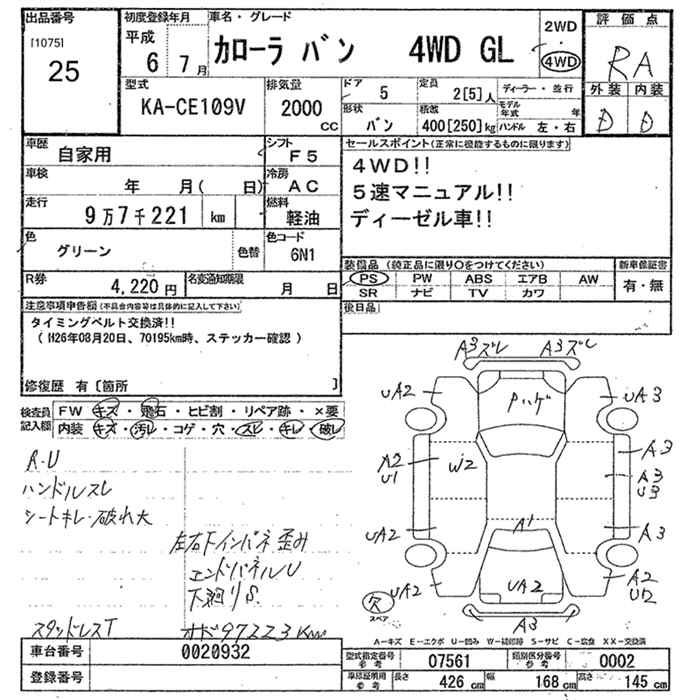 出品番号
[1075]
25
初度登録年月
平成
6 7月
車名・グレード
カローラ バン 4WD GL
2WD
4WD
評価点
RA
外装 内装
D D
型式
KA-CE109V
排気量
2000
CC
ドア
5
形状
バン
定員
2[5]人
積載
400[250]kg
ディーラー・並行
モデル年式 年
ハンドル 左・右
車歴
自家用
シフト
F5
車検
年 月( 日)
冷房
AC
走行
9万7千221 km
燃料
軽油
色
グリーン
色替
色コード
6N1
R券
4,220 円
名変通知期限
月 日
セールスポイント(正常に機能するものに限ります)
4WD!!
5速マニュアル!!
ディーゼル車!!
装備品 (純正品に限り○をつけてください)
PS PW ABS エアB AW
SR ナビ TV カワ
新車保証書
有・無
後日品
注意事項申告欄(不具合内容等は具体的に記入して下さい)
タイミングベルト交換済!!
( H26年08月20日、70195km時、ステッカー確認 )
修復歴 有〔箇所 〕
検査員
記入欄
FW キズ・飛石・ヒビ割・リペア跡・×要
内装 キズ・汚レ・コゲ・穴・スレ・キレ・破レ
A・U
ハンドルスレ
シートキレ・破れ大
左右下インパネ歪み
エンドパネルU
下廻りS
スタッドレスT
オド97223Km
A3ズレ A3ズレ
UA2
Pハゲ
UA3
A2
U1
W2
A3
A3
U3
UA2
A1
A3
UA2
UA2
A2
U2
欠
スペア
A3
A-キズ E-エクボ U-凹み W-補修跡 S-サビ C-腐食 XX-交換済
車台番号
0020932
登録番号
型式指定番号
参考
07561
類別区分番号
参考
0002
車検証明用
参考
長さ
426 cm
幅
168 cm
高さ
145 cm